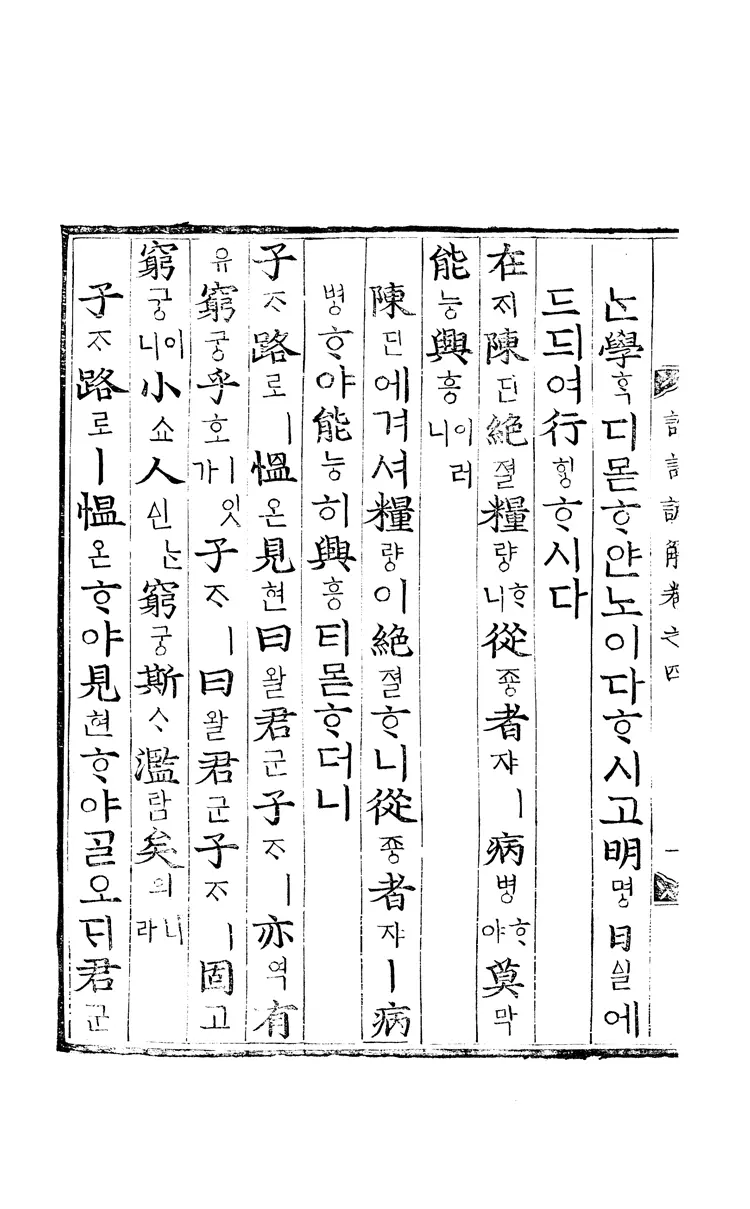 論語諺解卷之四 一
ᄂᆞᆫ學ᄒᆞᆨ디몯ᄒᆞ얀노이다ᄒᆞ시고明명日ᅀᅵᆯ에
드듸여行ᄒᆡᆼᄒᆞ시다
在ᄌᆡ陳딘絶졀糧량ᄒᆞ니從죵者쟈ㅣ病병ᄒᆞ야莫막
能능興흥이러니
陳딘에겨셔糧량이絶졀ᄒᆞ니從죵者쟈ㅣ病
병ᄒᆞ야能능히興흥티몯ᄒᆞ더니
子ᄌᆞ路로ㅣ慍온見현曰왈君군子ᄌᆞㅣ亦역有
유窮궁乎호ㅣ잇가子ᄌᆞㅣ曰왈君군子ᄌᆞㅣ固고
窮궁이니小쇼人ᅀᅵᆫᄂᆞᆫ窮궁斯ᄉᆞ濫람矣의니라
子ᄌᆞ路로ㅣ慍온ᄒᆞ야見현ᄒᆞ야ᄀᆞᆯ오ᄃᆡ君군